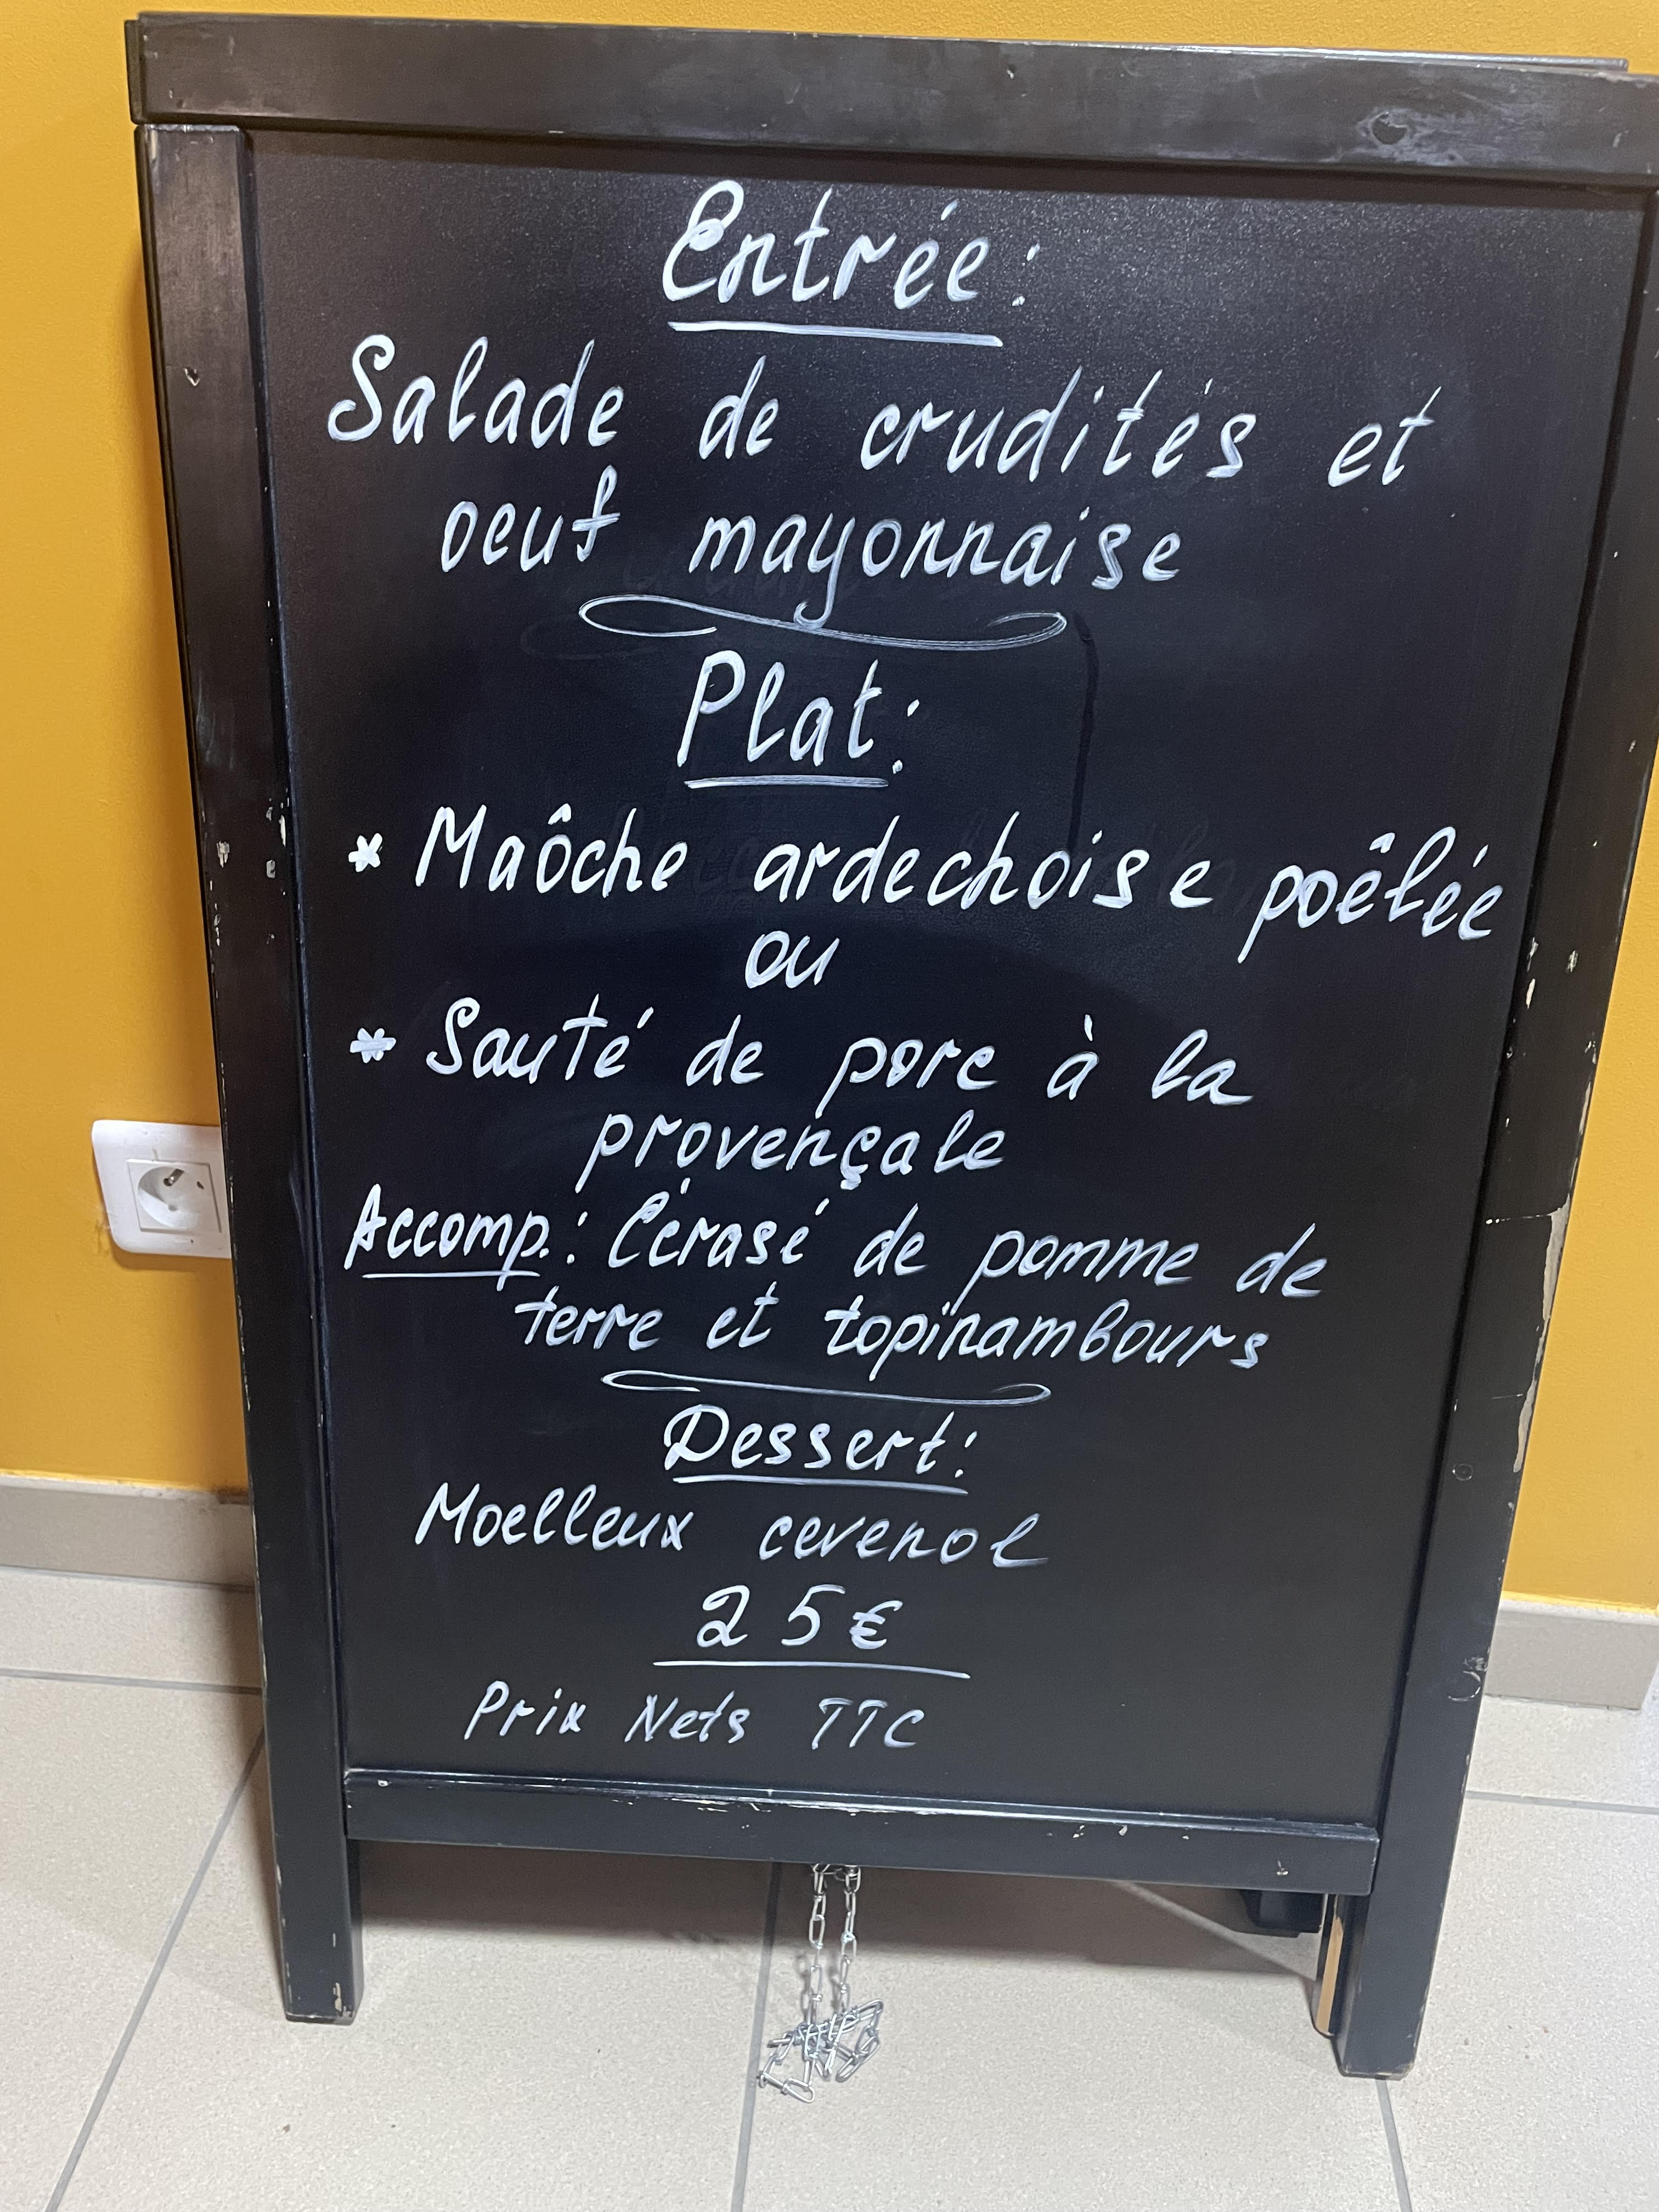 Entrée:
Salade de crudités et
oeuf mayonnaise
Plat:
* Maôche ardechoise poêlée
ou
* Sauté de porc à la
provençale
Accomp.: Écrasé de pomme de
terre et topinambours
Dessert:
Moelleux cevenol
25€
Prix Nets TTC